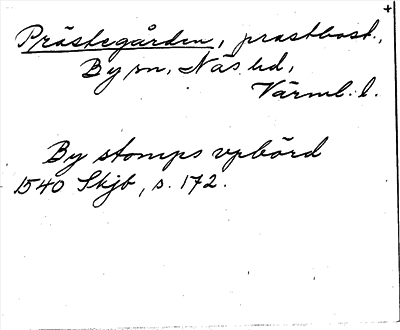 Prästegården, prästbost.,
By sn, Näs hd,
Värml. l.
By stomps vpbörd
1540 Skjb, s. 172.